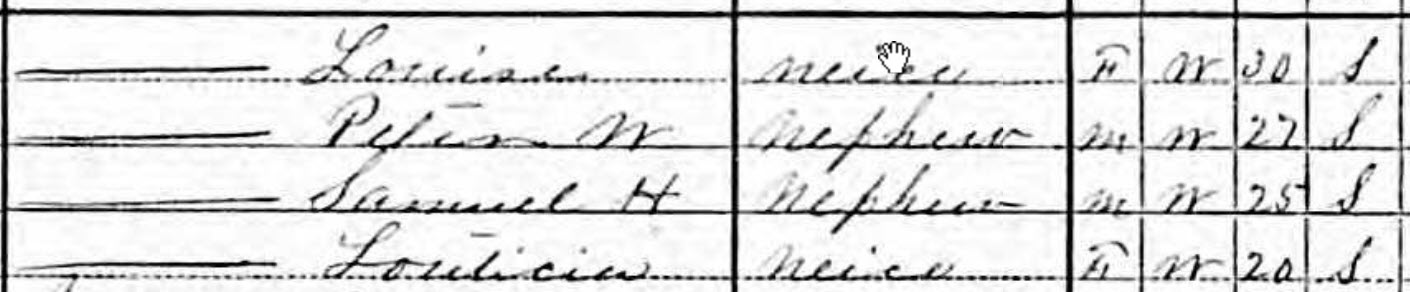 —— Louisa neice F W 30 S
—— Peter W nephew m W 27 S
—— Samuel H nephew m W 25 S
—— Louticia neice F W 20 S